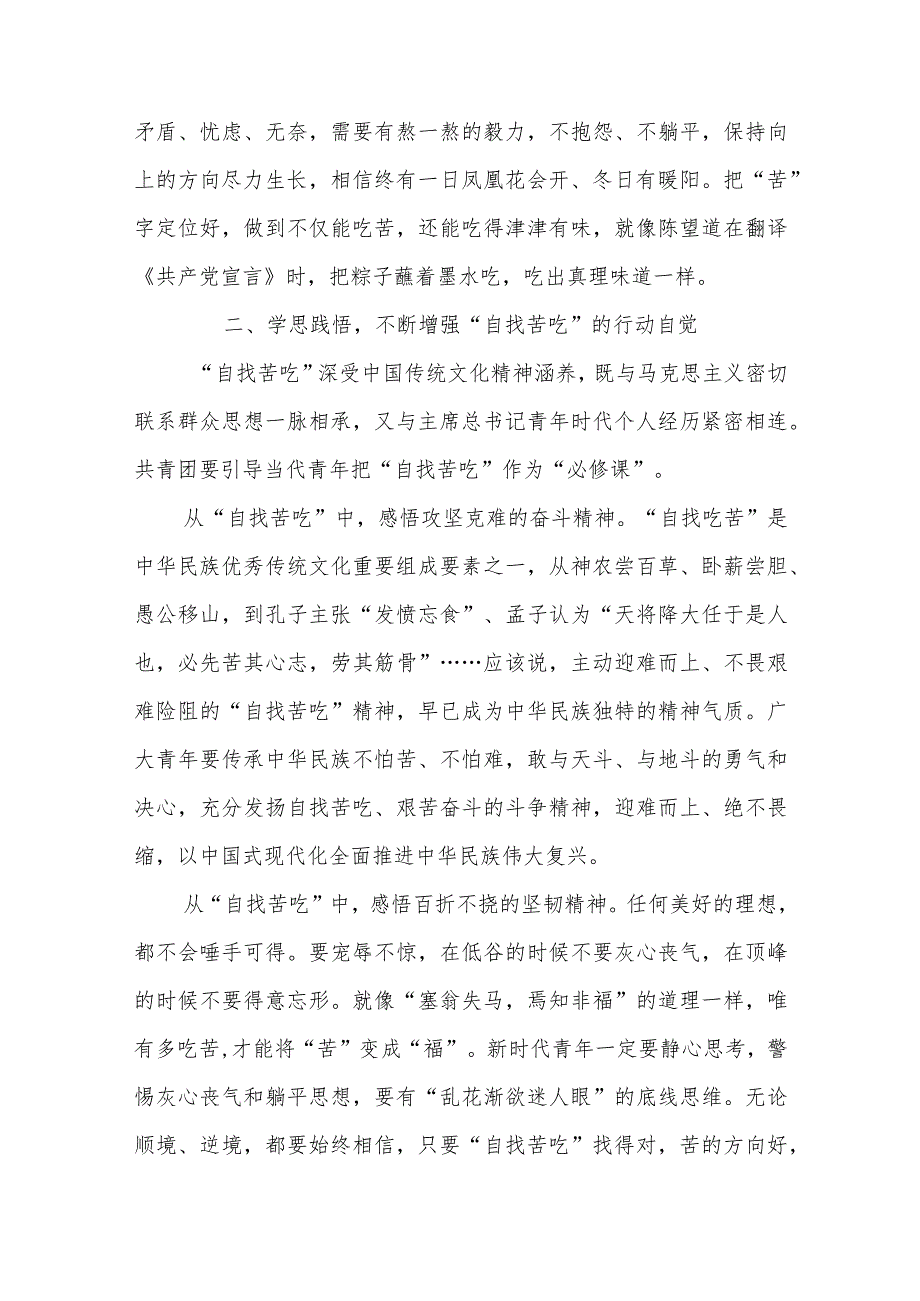 矛盾、忧虑、无奈，需要有熬一熬的毅力，不抱怨、不躺平，保持向
上的方向尽力生长，相信终有一日凤凰花会开、冬日有暖阳。把“苦”
字定位好，做到不仅能吃苦，还能吃得津津有味，就像陈望道在翻译
《共产党宣言》时，把粽子蘸着墨水吃，吃出真理味道一样。
二、学思践悟，不断增强“自找苦吃”的行动自觉
“自找苦吃”深受中国传统文化精神涵养，既与马克思主义密切
联系群众思想一脉相承，又与主席总书记青年时代个人经历紧密相连。
共青团要引导当代青年把“自找苦吃”作为“必修课”。
从“自找苦吃”中，感悟攻坚克难的奋斗精神。“自找吃苦”是
中华民族优秀传统文化重要组成要素之一，从神农尝百草、卧薪尝胆、
愚公移山，到孔子主张“发愤忘食”、孟子认为“天将降大任于是人
也，必先苦其心志，劳其筋骨”……应该说，主动迎难而上、不畏艰
难险阻的“自找苦吃”精神，早已成为中华民族独特的精神气质。广
大青年要传承中华民族不怕苦、不怕难，敢与天斗、与地斗的勇气和
决心，充分发扬自找苦吃、艰苦奋斗的斗争精神，迎难而上、绝不畏
缩，以中国式现代化全面推进中华民族伟大复兴。
从“自找苦吃”中，感悟百折不挠的坚韧精神。任何美好的理想，
都不会唾手可得。要宠辱不惊，在低谷的时候不要灰心丧气，在顶峰
的时候不要得意忘形。就像“塞翁失马，焉知非福”的道理一样，唯
有多吃苦,才能将“苦”变成“福”。新时代青年一定要静心思考，警
惕灰心丧气和躺平思想，要有“乱花渐欲迷人眼”的底线思维。无论
顺境、逆境，都要始终相信，只要“自找苦吃”找得对，苦的方向好，